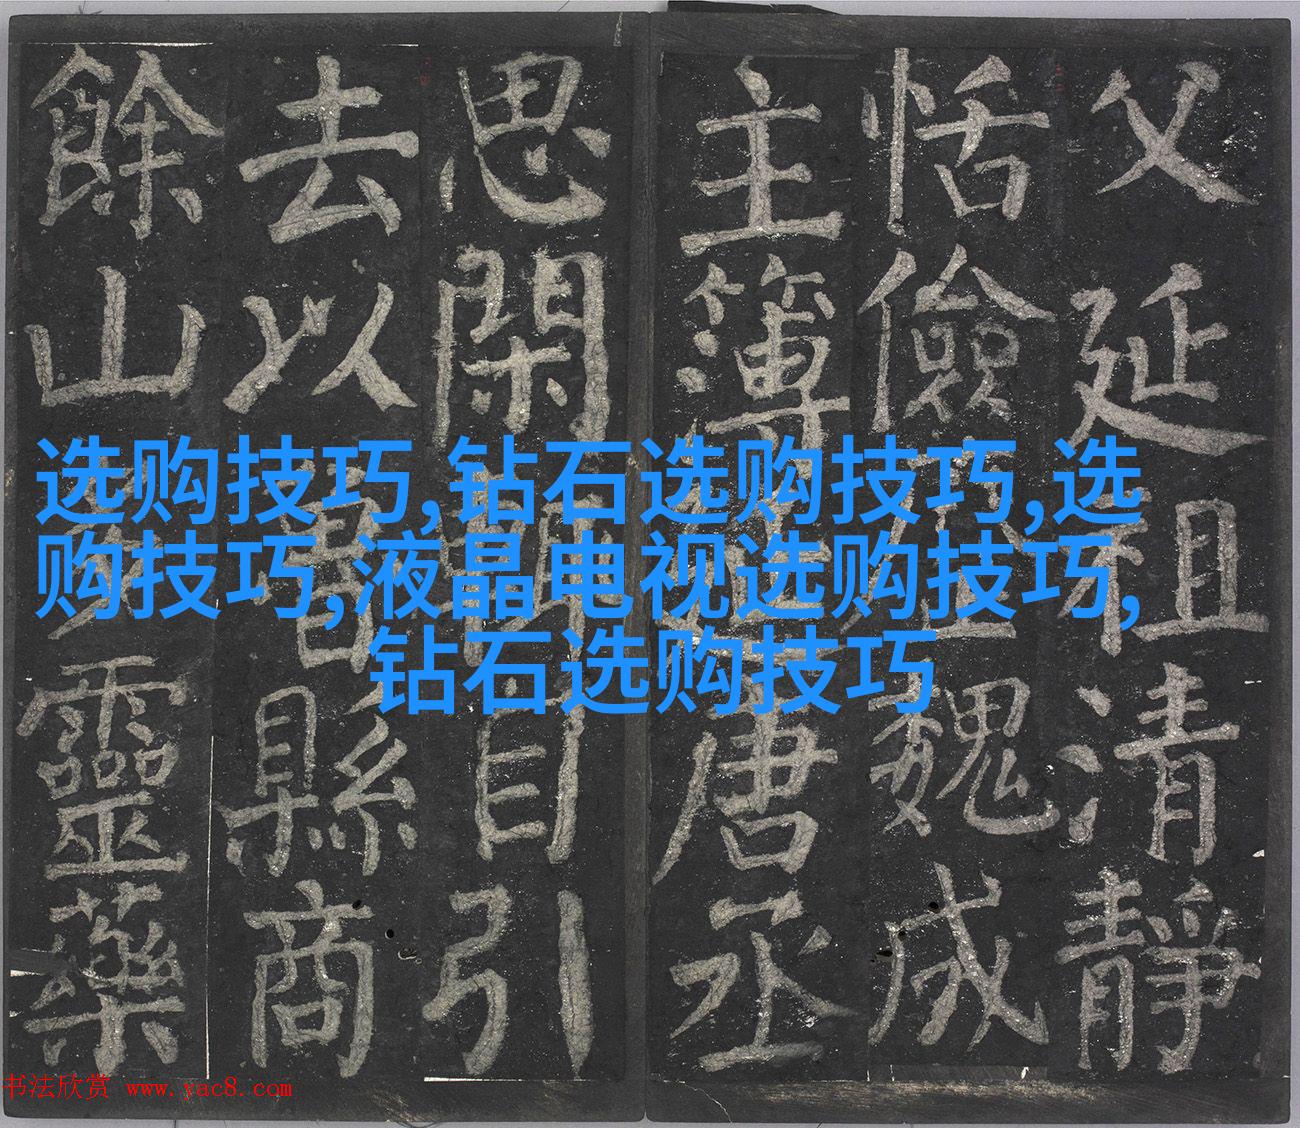 父延祖清靜
恬儉歷魏成
主簿延唐丞
思閑輒自引
去以魯縣商
餘山多靈藥
选购技巧,钻石选购技巧,选
购技巧,液晶电视选购技巧,
钻石选购技巧
书法欣赏 www.yac8.com